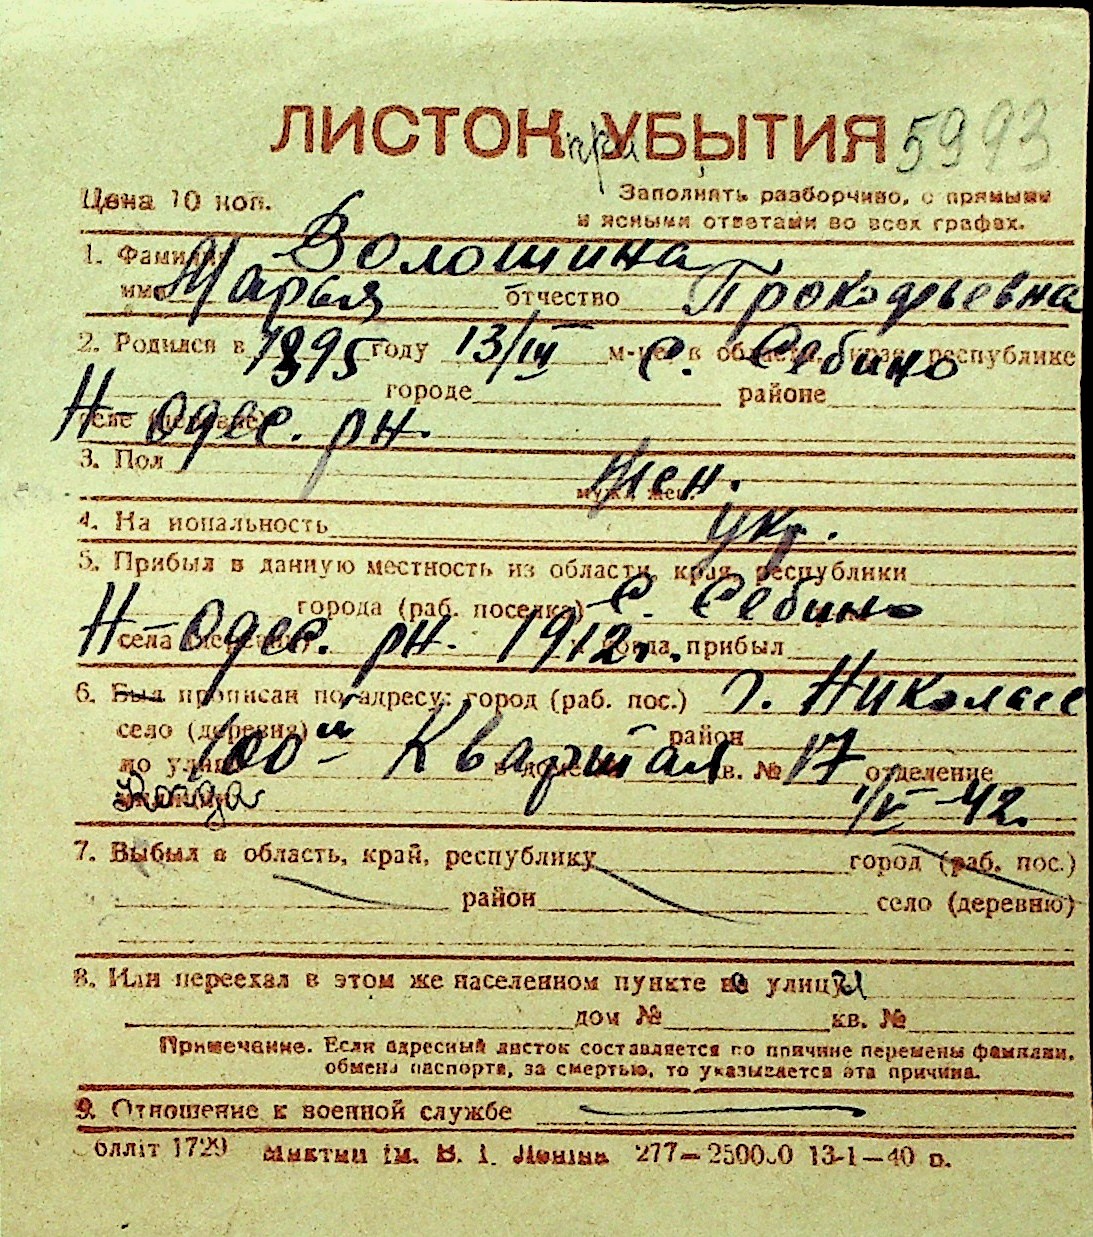 ЛИСТОК при УБЫТИЯ 5993
Цена 10 коп.
Заполнять разборчиво, с прямыми
и ясными ответами во всех графах.
1. Фамилия Волошина
имя Марья отчество Прокофьевна
2. Родился в 1895 году 13/III м-це в области, края, республике с. Себино
городе районе
селе (деревне) Н-Одес. рн.
3. Пол жен.
4. На иональность укр.
5. Прибыл в данную местность из области, края, республики
города (раб. поселка) с. Себино
села (деревни) Н-Одес. рн. 1912 г. когда прибыл
6. Был прописан по адресу: город (раб. пос.) г. Николаев
село (деревня) район
по улице 100й Квартал в доме кв. № 17 отделение
милиции 1/V-42.
7. Выбыл в область, край, республику город (раб. пос.)
район село (деревню)
8. Или переехал в этом же населенном пункте на улицу
дом № кв. №
Примечание. Если адресный листок составляется по причине перемены фамилии,
обмена паспорта, за смертью, то указывается эта причина.
9. Отношение к военной службе
1729 ім. В. І. Леніна 277— 13-1—40 р.